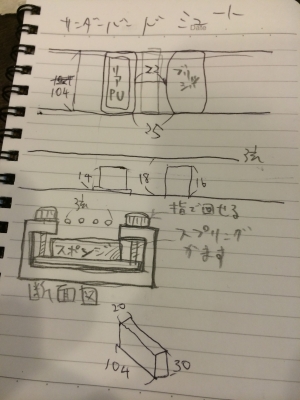 サンダーバード ミュート
104
リア
PU
22
ブリッジ
35
弦
14
18
16
弦
指で回せる
スプリング
かます
スポンジ
断面図
20
104
30